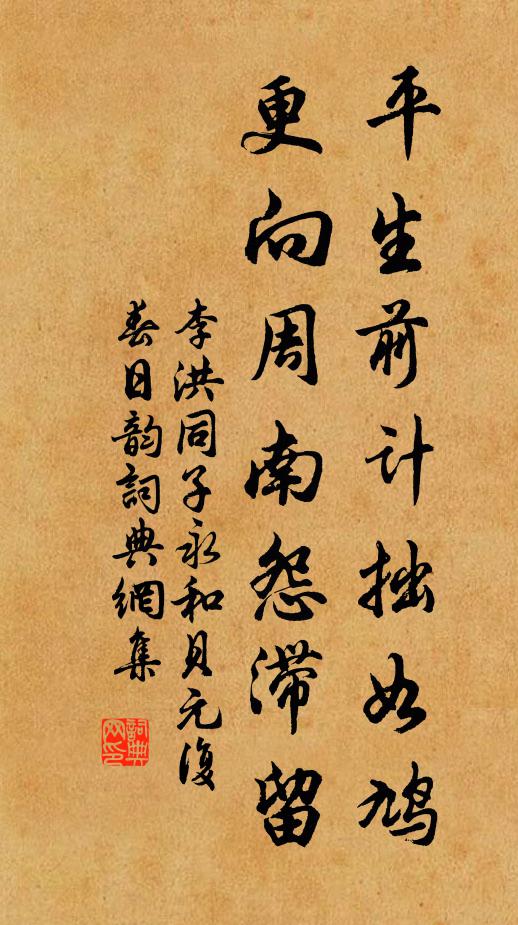 平生前计拙如鸠
更向周南怨滞留
李洪同子永和貝元復
春日韵詞典網集
詞典网印